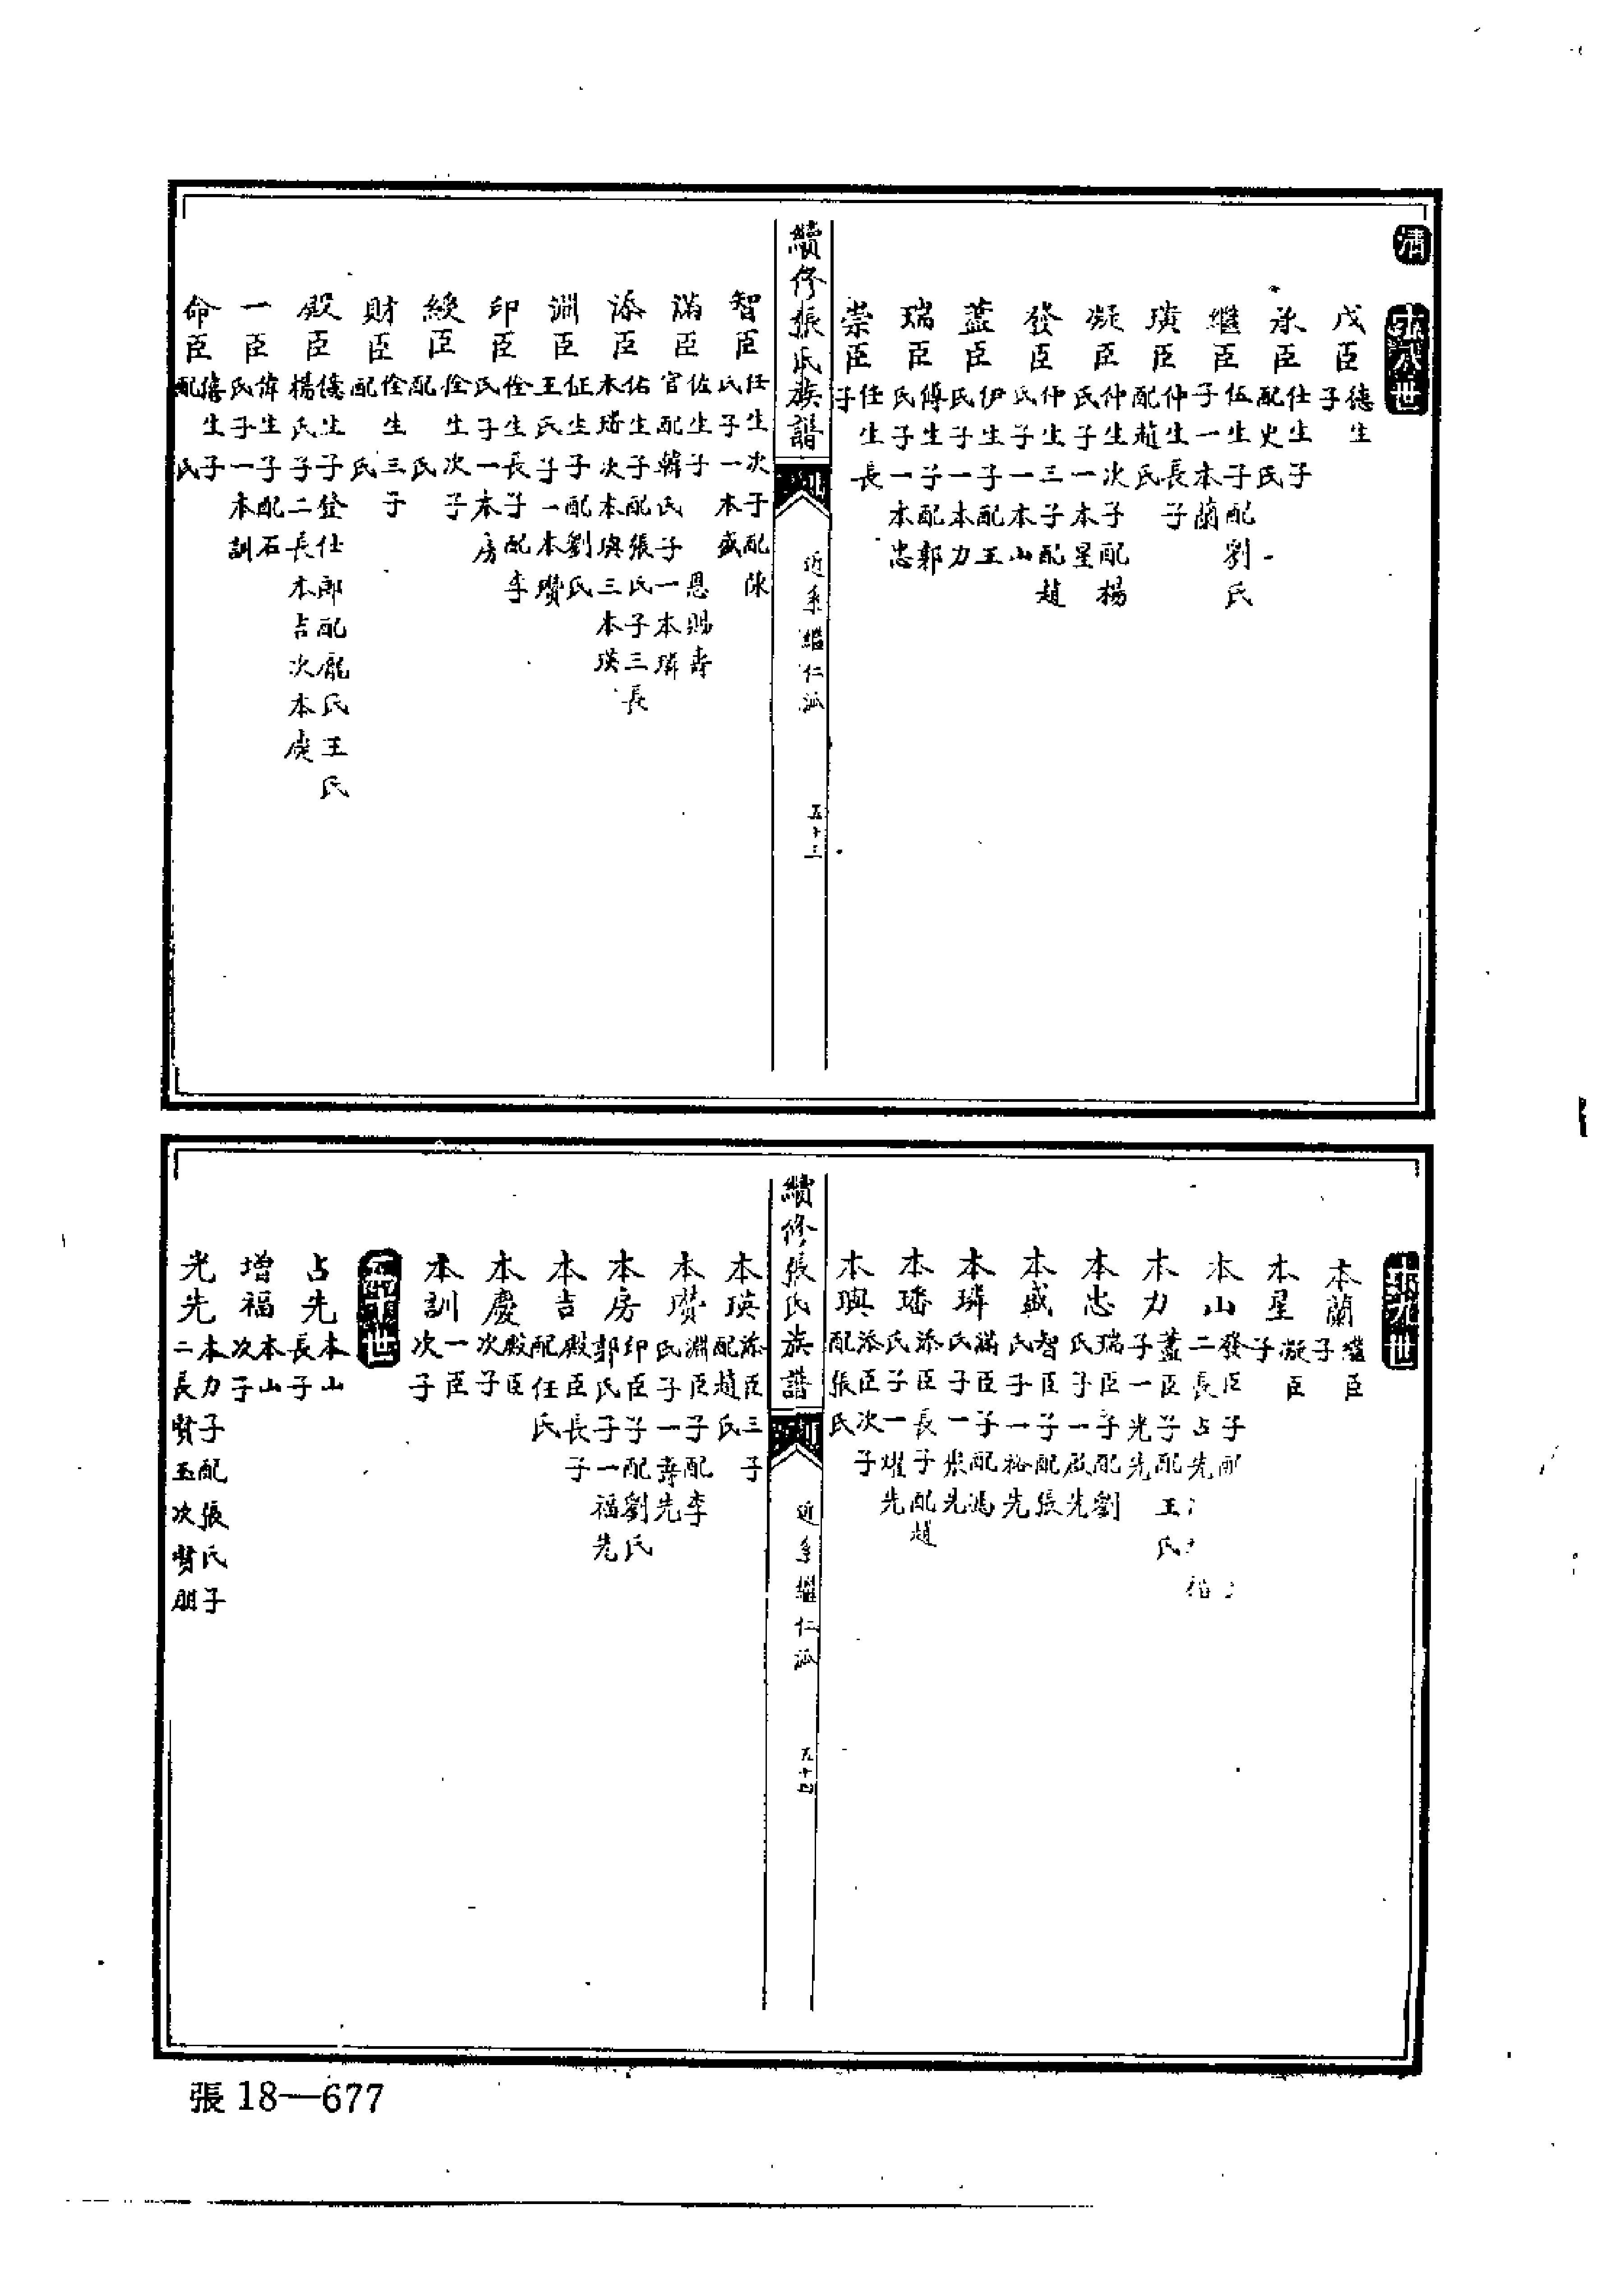 清
十八世
戊臣德生子
承臣仕生子配史氏
繼臣伍生子配劉氏子一本蘭
璜臣仲生長子配趙氏
凝臣仲生次子配楊氏子一本星
發臣仲生三子配趙氏子一本山
蓋臣伊生子配王氏子一本力
瑞臣傅生子配郭氏子一本忠
崇臣任生長子
續修張氏族譜
近系繼仁派
五十三
智臣任生次子配陳氏子一本盛
滿臣佐生子恩賜壽官配韓氏子一本璘
添臣佑生子配張氏子三長本璠次本璵三本瑛
淵臣征生子配劉氏王氏子一本瓚
印臣佺生長子配李氏子一本房
綬臣佺生次子配氏
財臣佺生三子配氏
殿臣儀生子登仕郎配龐氏王氏楊氏子二長本吉次本慶
一臣偉生子配石氏子一本訓
命臣僖生子配氏
十九世
本蘭繼臣子
本星凝臣子
本山發臣子配二長占先
本力蓋臣子配王氏子一光先
本忠瑞臣子配劉氏子一啟先
本盛智臣子配張氏子一裕先
本璘滿臣子配馮氏子一先
本璠添臣長子配趙氏子一耀先
本璵添臣次子配張氏
續修張氏族譜
近系繼仁派
五十四
本瑛添臣三子配趙氏
本瓚淵臣子配李氏子一壽先
本房印臣子配劉氏郭氏子一福先
本吉殿臣長子配任氏
本慶殿臣次子
本訓一臣次子
二十世
占先本山長子
增福本山次子
光先本力子配張氏子二長賢玉次賢朋
張 18—677